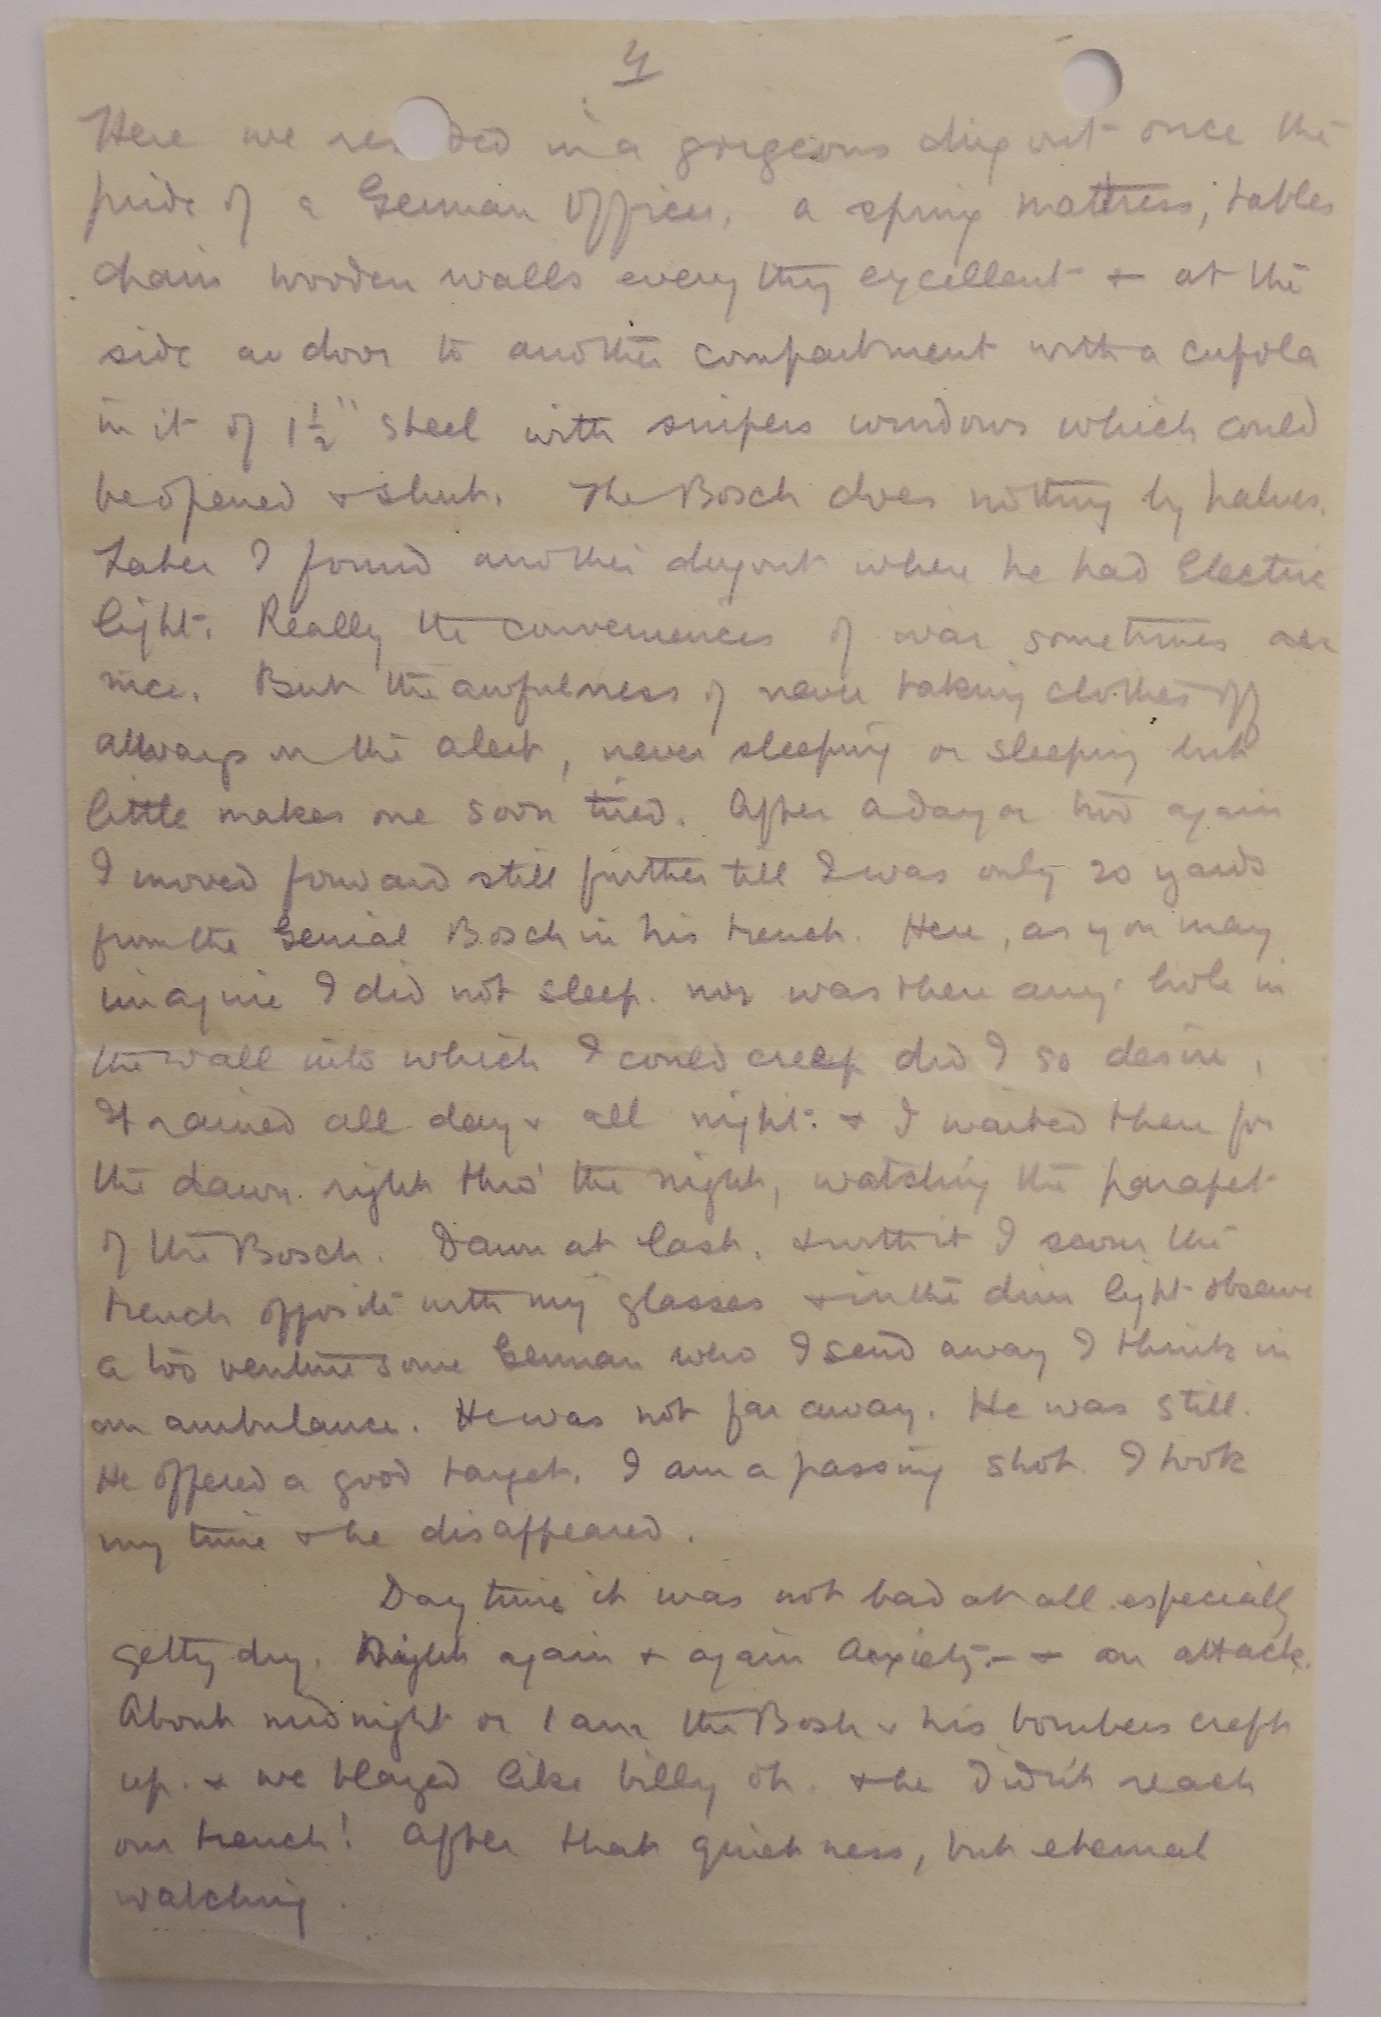 4
Here we res ded in a gorgeous dug out once the
pride of a German Officer. a spring mattress, tables
chairs wooden walls every thing excellent & at the
side a door to another compartment with a cupola
in it of 1½" steel with snipers windows which could
be opened & shut. The Bosch does nothing by halves.
Later I found another dugout where he had Electric
light. Really the conveniences of war sometimes are
nice. But the awfulness of never taking clothes off
always on the alert, never sleeping or sleeping but
little makes one soon tired. After a day or two again
I moved forward still further till I was only 20 yards
from the Genial Bosch in his trench. Here, as you may
imagine I did not sleep. nor was there any hole in
the wall into which I could creep did I so desire.
It rained all day & all night. & I waited there for
the dawn. right thro' the night, watching the parapet
of the Bosch. Dawn at last. & with it I scour the
trench opposite with my glasses & in the dim light observe
a too venturesome German who I send away I think in
an ambulance. He was not far away. He was still.
He offered a good target. I am a passing shot I took
my time & he disappeared.
Day time it was not bad at all. especially
getting dry. Night again & again Anxiety - & an attack.
About midnight or 1 am the Bosh & his bombers crept
up. & we blazed like billy oh. & he didn't reach
our trench! After that quiet ness, but eternal
watching.